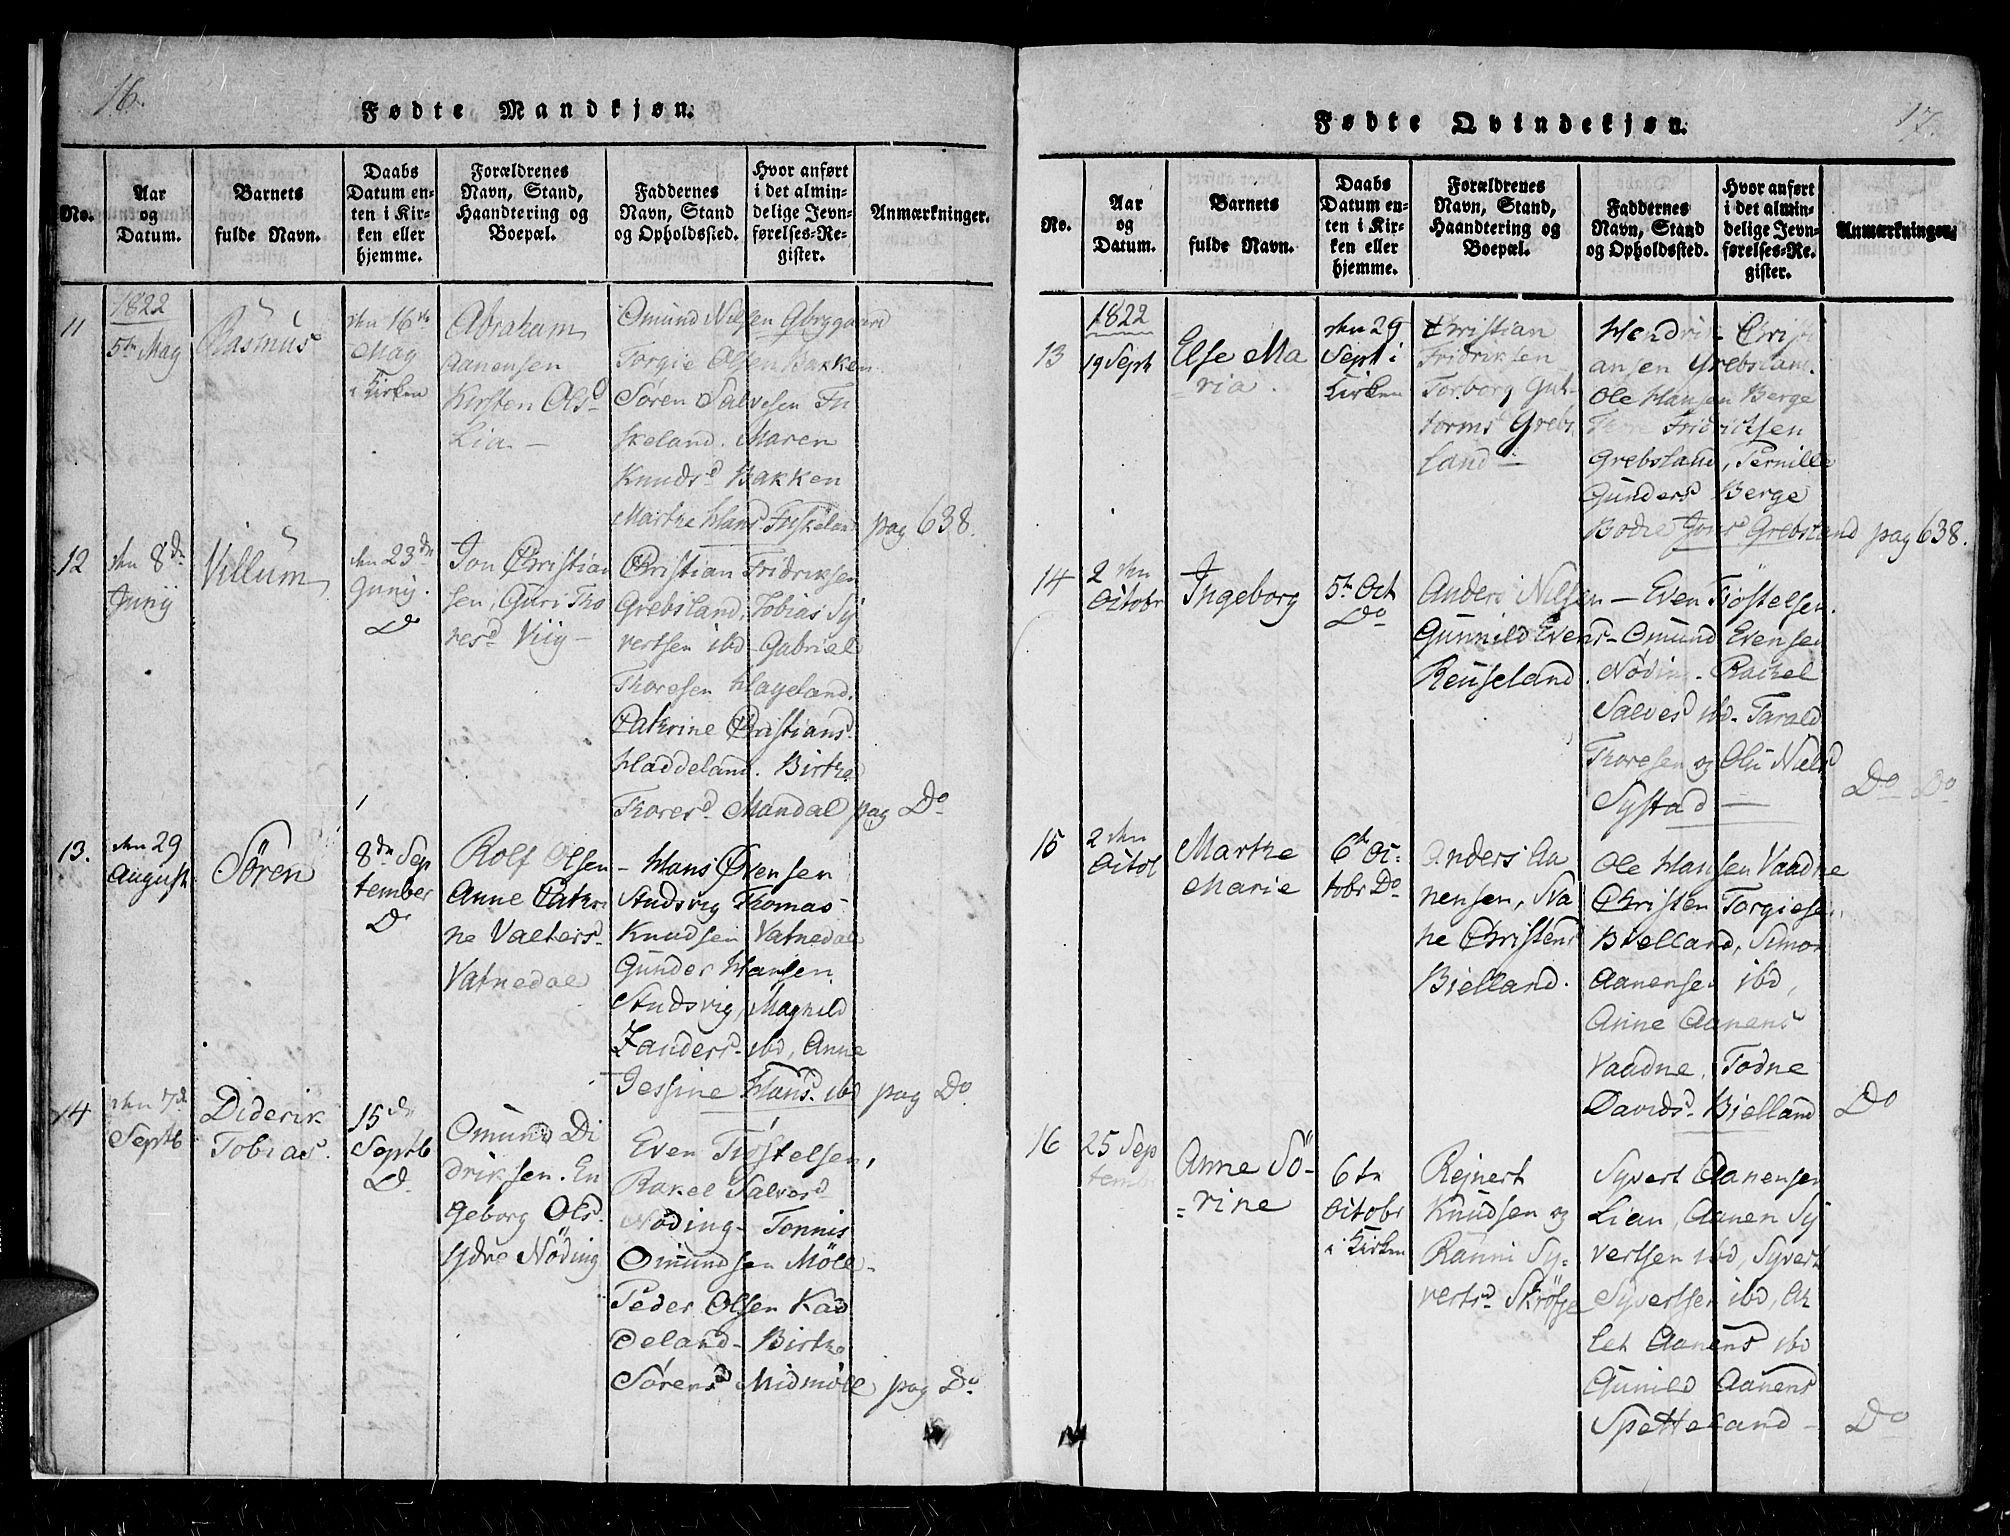 16.
Fødte Mandkjøn.
No.
Aar
og
Datum.
Barnets
fulde Navn.
Daabs
Datum en-
ten i Kir-
ken eller
hjemme.
Forældrenes
Navn, Stand,
Haandtering og
Boepæl.
Faddernes
Navn, Stand
og Opholdssted.
Hvor anført
i det almin-
delige Jevn-
førelses-Re-
gister.
Anmærkninger.
11
1822
5te Maj
Rasmus
den 16de
Maj
i Kirken
Abraham
Aanensen
Kirsten Olsd
Lia -
Omund Nilsen
Torgie Olsen Bakken
Søren Salvesen Fu
skeland. Maren
Knudsd Bakken
Marthe Hansd Fuskeland
pag 638.
12
den 8de
Junij
Villum
den 23de
Junij.
Do
Jon Christian
sen, Guri Tho
resd Viig -
Christian Fridriksen
Grebsland, Tobias Sy
vertsen ibd Gabriel
Thoresen Hageland.
Cathrine Christiansd
Haddeland. Birthe
Thoresd Mandal
pag Do
13.
den 29
August
Søren
8de Sep
tember
Do
Rolf Olsen
Anne Cathri
ne Valtersd
Vatnedal
- Hans Øvensen
Studsvig Thomas
Knudsen Vatnedal
Gunder Hansen
Studsvig, Magnild
Zandersd ibd, Anne
Jessine Hansd ibd
pag Do
14
den 7de
Septb
Diderik
Tobias.
15de
Septb
Do
Omund Di
driksen. En
geborg Olsd
Ydre Nöding
Even Tiöstelsen,
Rakel Salvesd
Nöding - Tonnis
Omundsen Möll -
Peder Olsen Kad
deland - Birthe
Sørensd Midmöll
pag Do
17.
Fødte Qvindekjøn.
No.
Aar
og
Datum.
Barnets
fulde Navn.
Daabs
Datum en-
ten i Kir-
ken eller
hjemme.
Forældrenes
Navn, Stand,
Haandtering og
Boepæl.
Faddernes
Navn, Stand
og Opholdssted.
Hvor anført
i det almin-
delige Jevn-
førelses-Re-
gister.
Anmærkninger.
13
1822
19 Sept
Else Ma
ria.
den 29
Sept i
Kirken
Christian
Fridriksen
Torborg Gut-
tormsd Grebs
land -
Hendrik Christi
ansen Grebsland.
Ole Hansen Berge
Thore Fridriksen
Grebsland, Pernille
Gundersd Berge
Bodil Jonsd Grebsland
pag 638.
14
2den
Octobr
Ingeborg
5te Oct
Do
Anders Nilsen
Gunnild Evensd
Reuseland.
- Even Tiöstelsen.
- Omund Evensen
Nöding - Rachel
Salvesd ibd - Tarald
Thoresen og Oli Nielsd
Systad -
Do Do
15
2den
Octob
Marthe
Marie
6te Oc-
tobr Do
Anders Aa
nensen, Sva
ne Christensd
Bielland.
Ole Hansen Vaadne
Christen Torgiesen
Bielland, Simon
Aanensen ibd,
Anne Aanensd
Vaadne, Todne
Davidsd Bielland
Do
16
25 Sep
tembr
Anne Sö-
=rine
6te
Octobr
i Kirken
Rejnert
Knudsen og
Ranni Sy=
vertsd Skröfse
Syvert Aanensen
Lian, Aanen Sy
vertsen ibd, Syvert
Syvertsen ibd, As
let Aanensd ibd
Gunild Aanensd
Spetteland -
Do